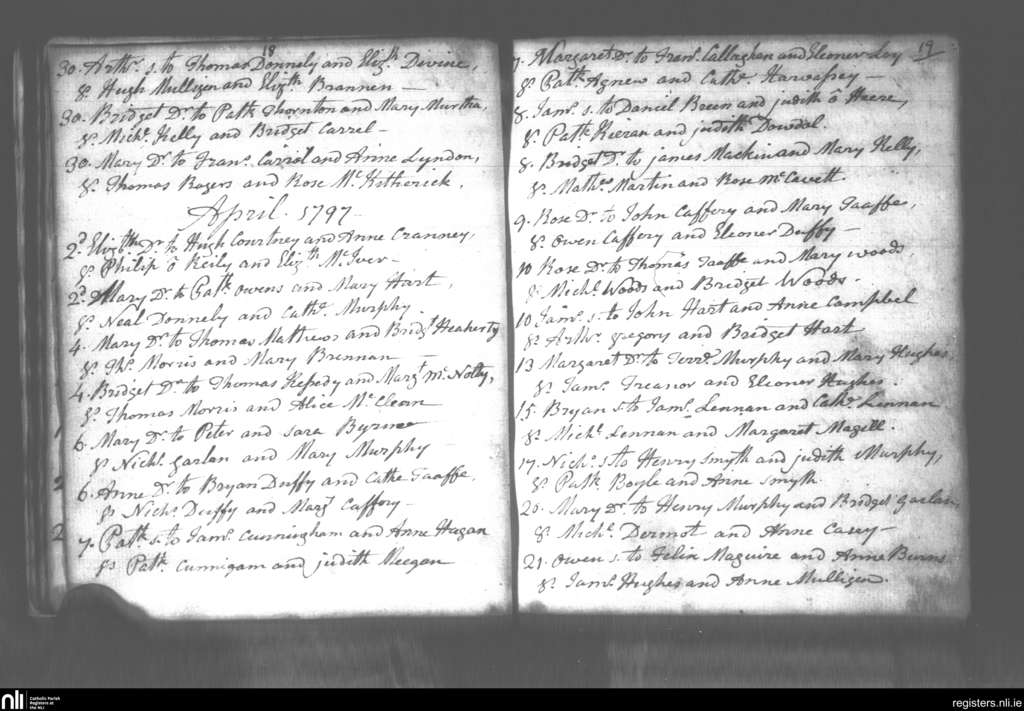 18
30. Arthr. s. to Thomas Donnely and Elizh. Divine,
Ss. Hugh Mulligen and Elizth. Brannen —
30. Bridget Dr. to Patk. Thornton and Mary Murtha,
Ss. Michl. Kelly and Bridget Carrel —
30. Mary Dr. to Frans. Carrol and Anne Lyndon,
Ss. Thomas Rogers and Rose Mc.
April. 1797
2d. Elizbth. Dr. to Hugh Courtney and Anne Cranney,
Ss. Philip ô Reily and Elizth. Mc.Iver —
2d. Mary Dr. to Patk. Owens and Mary Hart,
Ss. Neal Donnely and Cathe. Murphy
4. Mary Dr. to Thomas Mathews and Bridgt. Heaherty
Ss. Ths. Morris and Mary Brennan —
4. Bridget Dr. to Thomas and Margt. Mc.Nolty,
Ss. Thomas Morris and Alice Mc.Cleorn
6. Mary Dr. to Peter and Sara Byrne
Ss. Nichs. Garlan and Mary Murphy
6. Anne Dr. to Bryan Duffy and Cathe Taaffe,
Ss. Nichs. Duffy and Margt. Caffery —
7. Patk. s. to Jams. Cunningham and Anne Hagan
Ss. Patk. Cunnigam and judith Keegan
19
7. Margaret Dr. to Frans. Callaghan and Eleoner Loy
Ss. Patk. Agnew and Cathe. —
8. Jams. s. to Daniel Breen and judith ô Haere,
Ss. Patk. Kieran and judith Dowdal.
8. Bridget Dr. to james Mackin and Mary Kelly,
Ss. Mathew Martin and Rose McCavett
9. Rose Dr. to John Caffery and Mary Taaffe,
Ss. Owen Caffery and Eleoner Duffy —
10 Rose Dr. to Thomas Taaffe and Mary woods,
Ss. Michl. Woods and Bridget Woods.
10 Jams. s. to John Hart and Anne Campbel
Ss. Arthr. Gegory and Bridget Hart
13 Margaret Dr. to Terre. Murphy and Mary Hughes
Ss. Jams. Treanor and Eleoner Hughes.
15. Bryan s. to Jams. Lennan and Cathe. Lennan
Ss. Michl. Lennan and Margaret Magell.
17. Nichs. s. to Henry Smyth and judith Murphy,
Ss. Patk. Boyle and Anne Smyth
20. Mary Dr. to Henry Murphy and Bridget Garlan,
Ss. Michl. Dermot and Anne Casey —
21. Owen s. to Felin Maguire and Anne Burns
Ss. Jams. Hughes and Anne Mulligen.
nli Catholic Parish
Registers at
the NLI
registers.nli.ie